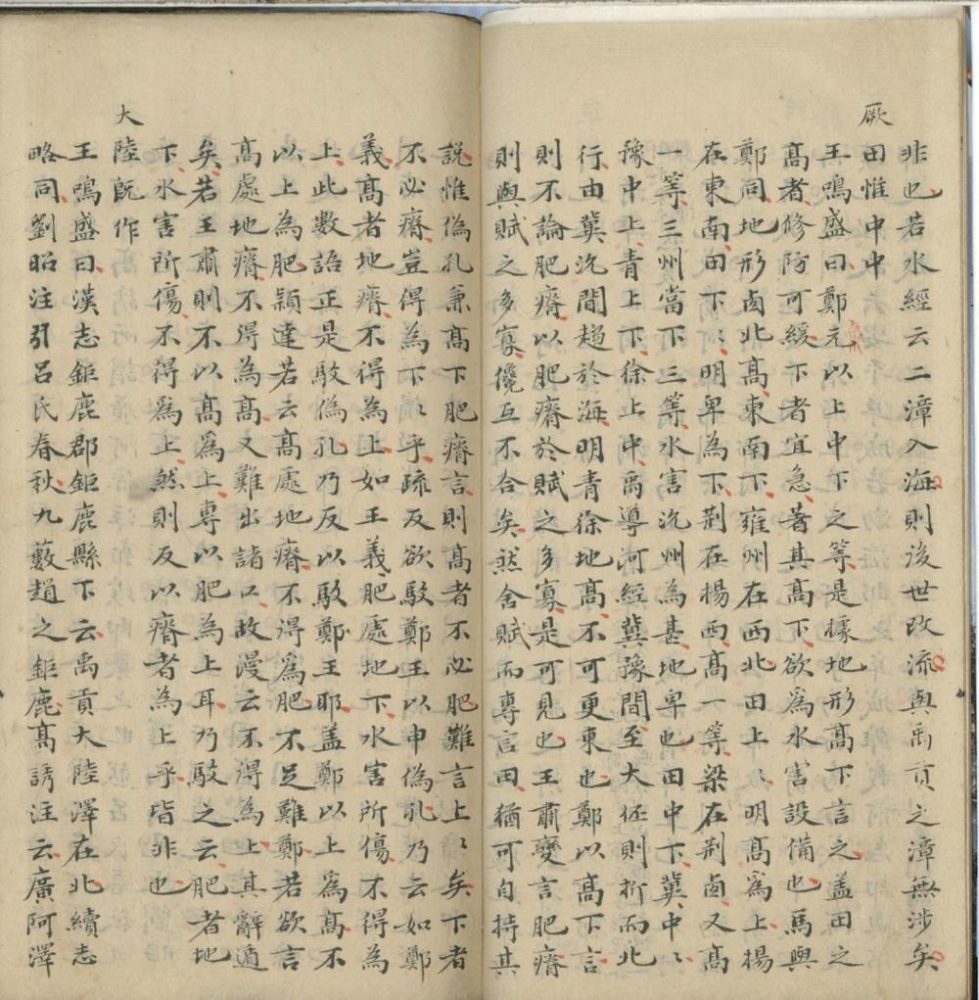 非也若水經云二漳入海則後世改流與禹貢之漳無涉矣
厥
田惟中中
王鳴盛曰鄭元以上中下之等是據地形高下言之蓋田之
高者修防可緩下者宜急著其高下欲為水害設備也馬與
鄭同地形西北高東南下雍州在西北田上〻明高為上揚
在東南田下〻明卑為下荆在揚西高一等梁在荆西又高
一等三州當下三等水害沇州為甚地卑也田中下冀中〻
豫中上青上下徐上中禹導河經冀豫間至大伾則折而北
行由冀沇間趨於海明青徐地高不可更東也鄭以高下言
則不論肥瘠以肥瘠於賦之多寡是可見也王肅變言肥瘠
則與賦之多寡儳互不合矣然舍賦而專言田猶可自持其
說惟偽孔兼高下肥瘠言則高者不必肥難言上〻矣下者
不必瘠豈得為下〻乎疏反欲駁鄭王以申偽孔乃云如鄭
義高者地瘠不得為上如王義肥處地下水害所傷不得為
上此數語正是駁偽孔乃反以駁鄭王耶蓋鄭以上為高不
以上為肥穎達若云高處地瘠不得為肥不足難鄭若欲言
高處地瘠不得為高又難出諸口故漫云不得為上其辭遁
矣若王肅則不以高為上專以肥為上耳乃駁之云肥者地
下水害所傷不得為上然則反以瘠者為上乎皆非也
大
陸旣作
王鳴盛曰漢志鉅鹿郡鉅鹿縣下云禹貢大陸澤在北續志
略同劉昭注引呂氏春秋九藪趙之鉅鹿高誘注云廣阿澤